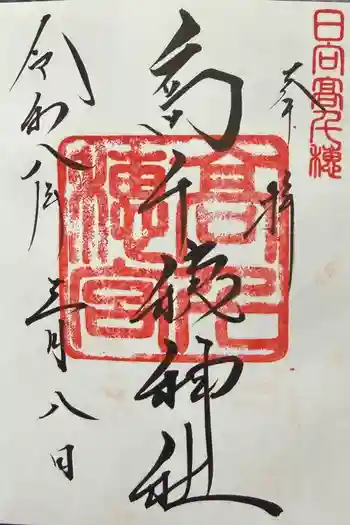 日向高千穂
奉拝
高千穂神社
高千穂宮
令和八年
三月八日